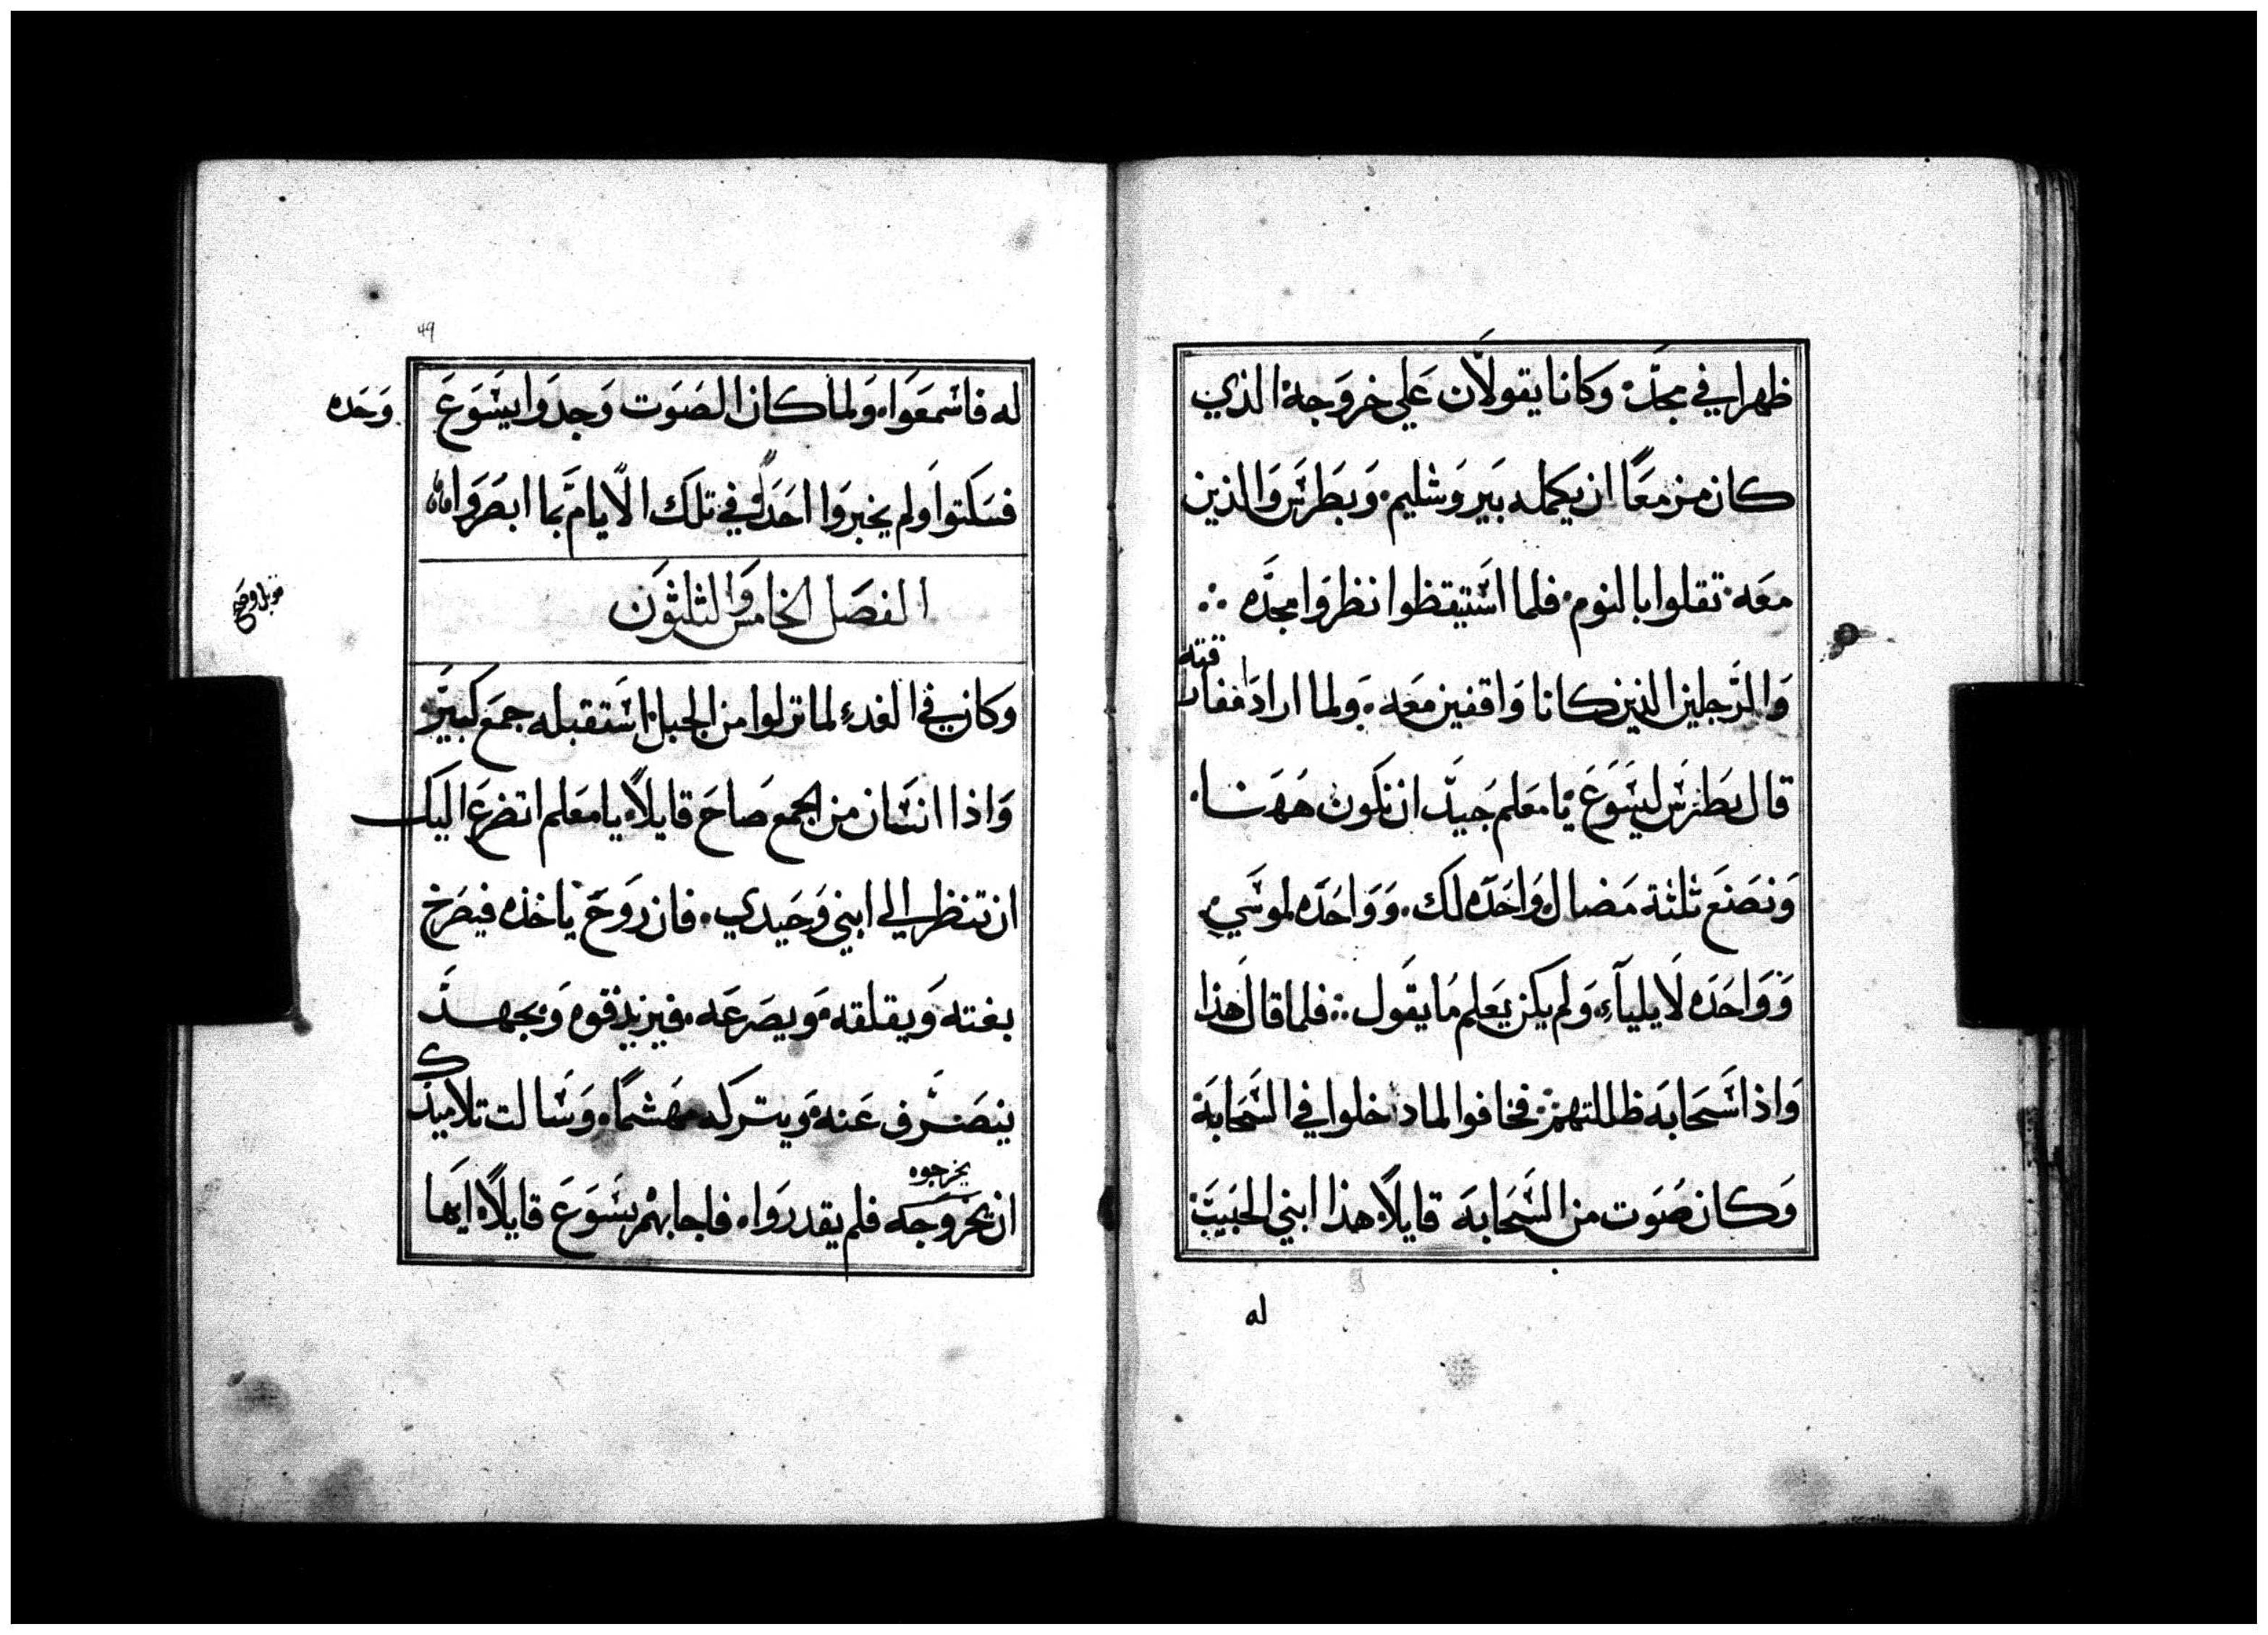 ظهرا في مجده وكانا يقولان علي خروجه الذي
كان مزمعا ان يكمله بيروشليم. وبطرس والذين
معه تقلوا بالنوم. فلما استيقظوا نظروا مجده ∴
والرجلين الذين كانا واقفين معه. ولما ارادا مفارقته
قال بطرس ليسوع يا معلم جيد ان نكون ههنا.
ونصنع ثلثة مضال واحده لك. وواحده لموسي
وواحده لايلياء. ولم يكن يعلم ما يقول ∴ فلما قال هذا
واذا سحابه ظللتهم فخافوا لما دخلوا في السحابة
وكان صوت من السحابة قايلا هذا ابني الحبيب
له
49
له فاسمعوا. ولما كان الصوت وجدوا يسوع وحده
فسكتوا ولم يخبروا احدا في تلك الايام بما ابصروا
الفصل الخامس والثلثون
قوبل وصح
وكان في الغد لما نزلوا من الجبل استقبله جمع كبير
واذا انسان من الجمع صاح قايلا يا معلم اتضرع اليك
ان تنظر الي ابني وحيدي. فان روح ياخذه فيصرخ
بغته ويقلقه ويصرعه. فيزبد فوه وبجهد
ينصرف عنه ويتركه مهشما. وسالت تلاميذك
يخرجوه
ان يخروجه فلم يقدروا. فاجابهم يسوع قايلا ايها